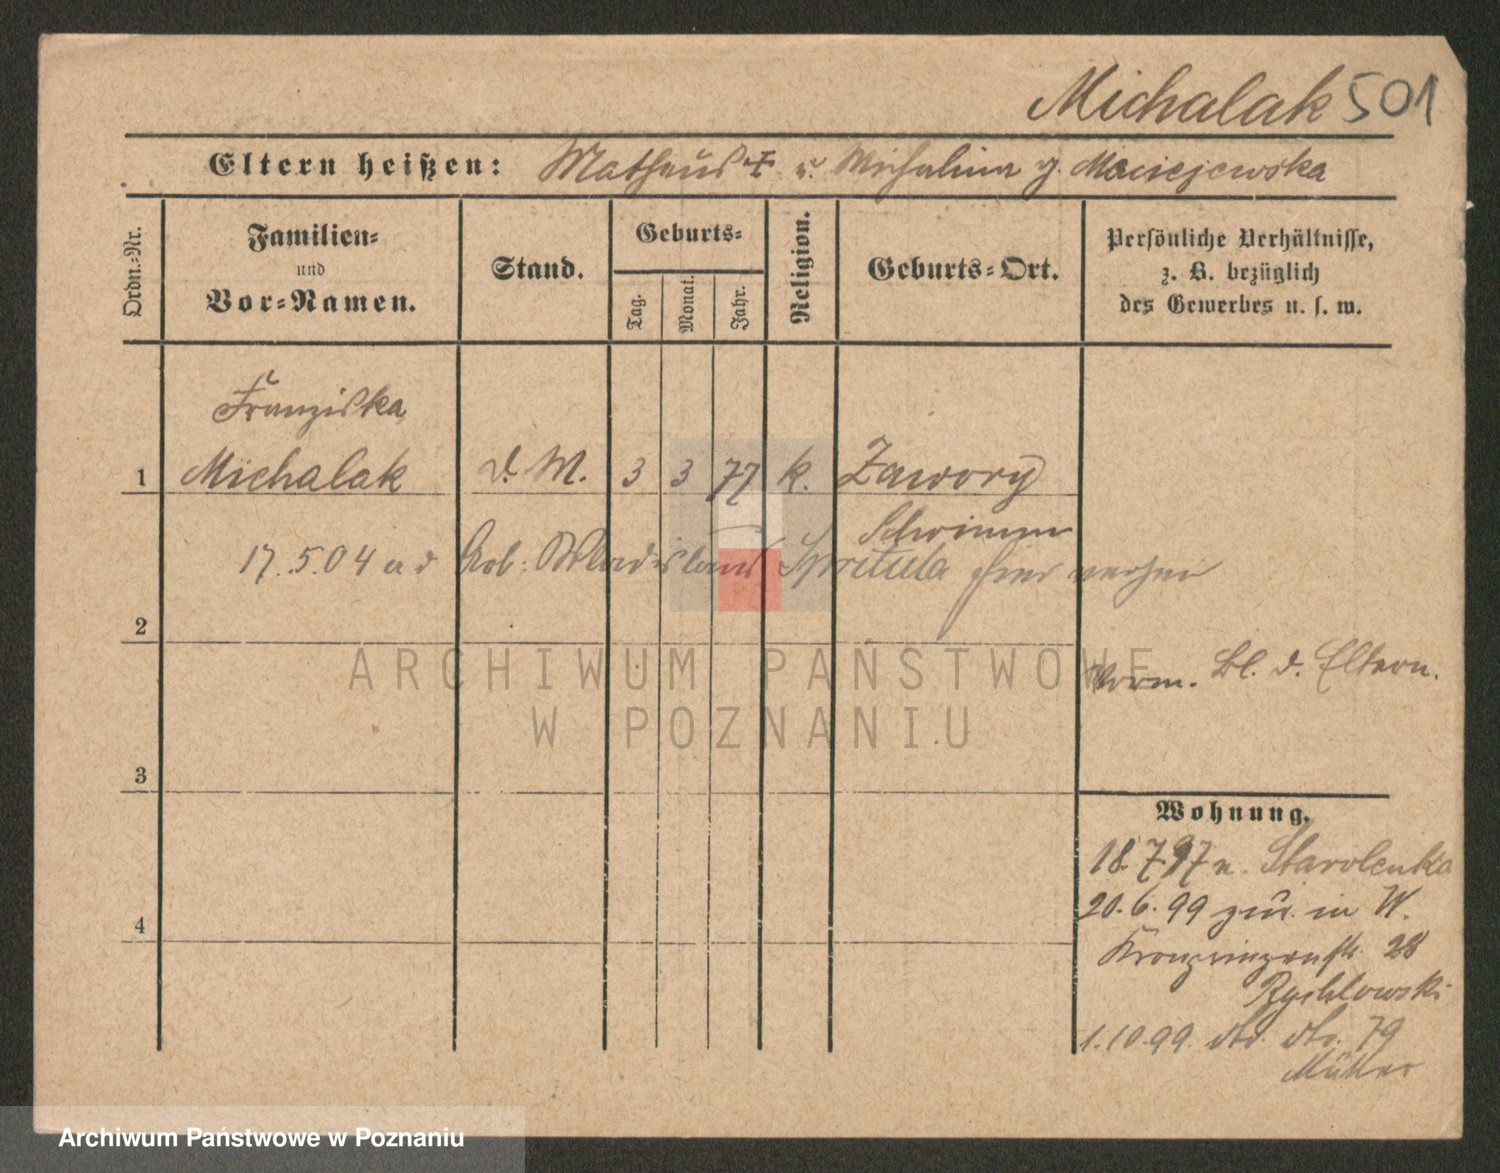 Michalak 501
Eltern heißen: Matheus † u. Michalina g. Maciejewska
Ordn.-Nr.
Familien-
und
Vor-Namen.
Stand.
Geburts-
Tag.
Monat.
Jahr.
Religion.
Geburts-Ort.
Persönliche Verhältnisse,
z. B. bezüglich
des Gewerbes u. s. w.
Franziska
1 Michalak d. M. 3 3 77 k. Zawory
Schrimm
17.5.04 a d Arb: Wladislaus hier
2
ARCHIWUM PAŃSTWOWE
W POZNANIU
Vorm. Bl. d. Eltern.
3
Wohnung.
18.7.97 n. Starolenka
20.6.99 zur. in W.
4
Kronprinzenstr. 28
Rychlowski
1.10.99. dto. dto. 79
Müller
Archiwum Państwowe w Poznaniu